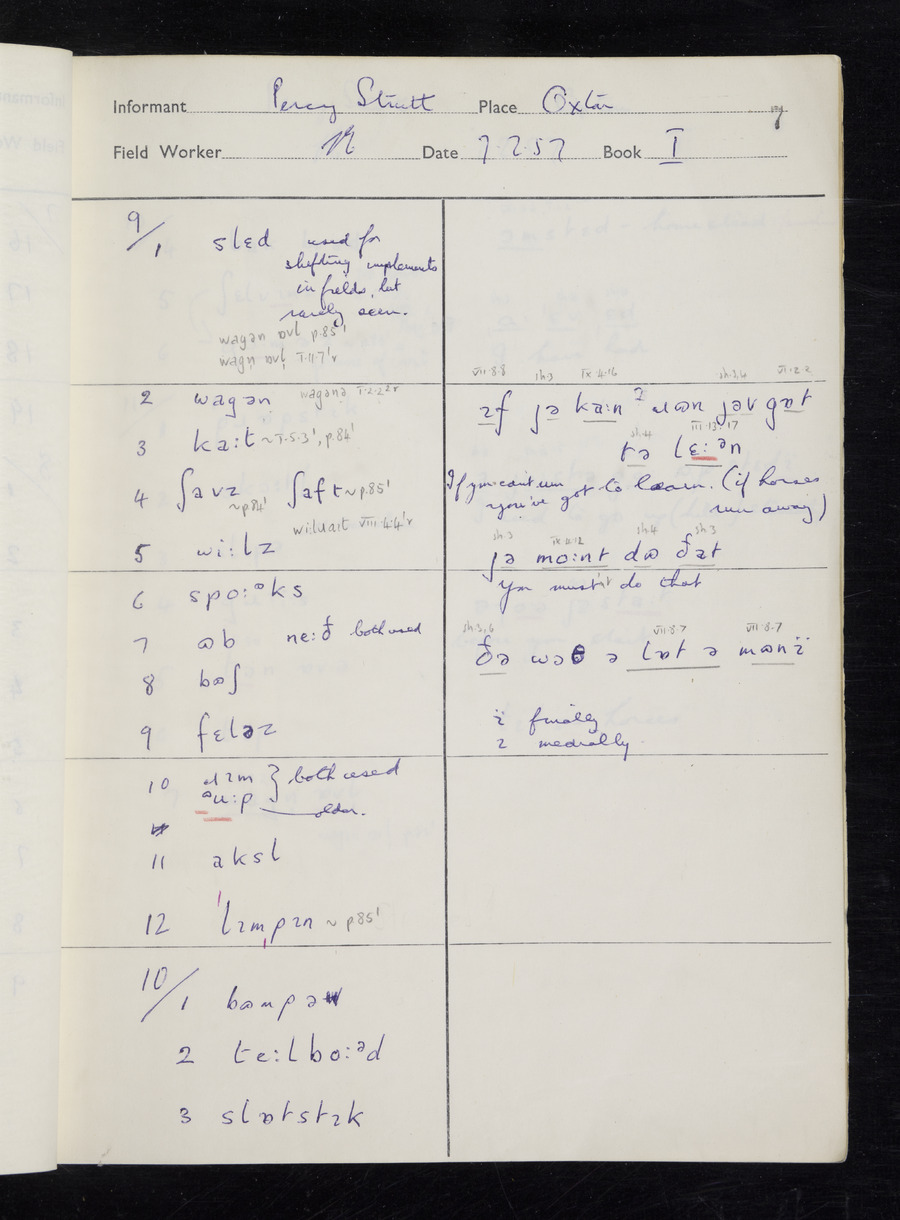 Informant Percy Strutt Place Oxton
7
Field Worker Date 7.2.57 Book I
9/1 slɛd used for
shifting implements
in fields, but
rarely seen.
wagən p.85'
wagn I.11.7'r
2 wagən wagənə I.2.2²r
3 ka:t ~I.5.3', p.84'
4 ʃavz ~p84' ʃaft ~p.85'
5 wi:lz VIII.4.4'r
6 spo:ᵊks
7 ɷb ne:ð both used
8 bɷʃ
9 fɛləz
10 ɹɪm } both used
ᵊu:p older.
11 aksl
12 'lɪmpɪn ~p85'
10/1 bɷmpə
2 te:lbo:ᵊd
3 slɒtstɪk
VII.8.8 sh.3 IX.4.16 sh.3,4 VI.2.2
ɪf jə ka:n ɹɷn jəv gɒt
sh.4 III.13.17
tə lɛ:ᵊn
If you can't run
you've got to learn. (if horses
run away)
sh.3 IX.4.12 sh.4 sh.3
jə mo:nt dɷ ðat
You mustn't do that
sh.3,6 VII.8.7 VII.8.7
ðə wəθ ə lɒt ə mɷnï
ï finally
ɪ medially